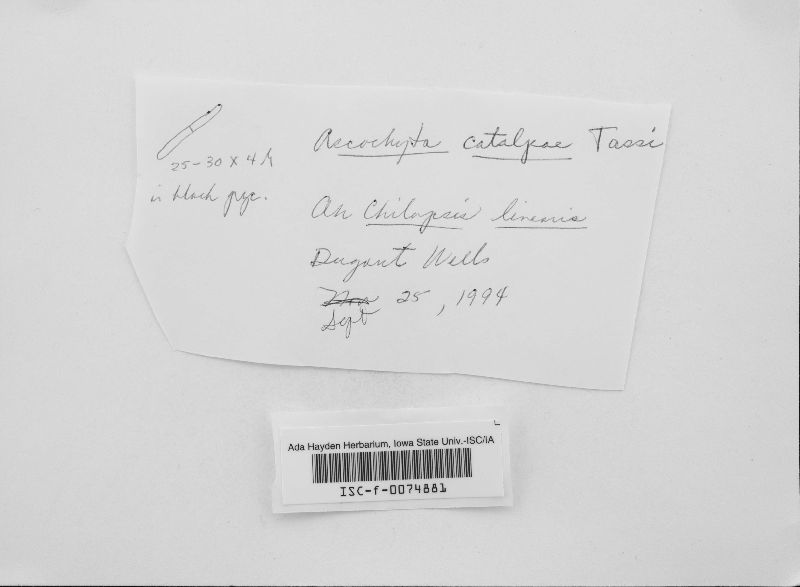 Ascochyta catalpae Tassi
25-30 x 4 µ
in black pyc.
On Chilopsis linearis
Dugout Wells
Nov 25, 1994
Sept
Ada Hayden Herbarium, Iowa State Univ.-ISC/IA
ISC-f-0074881